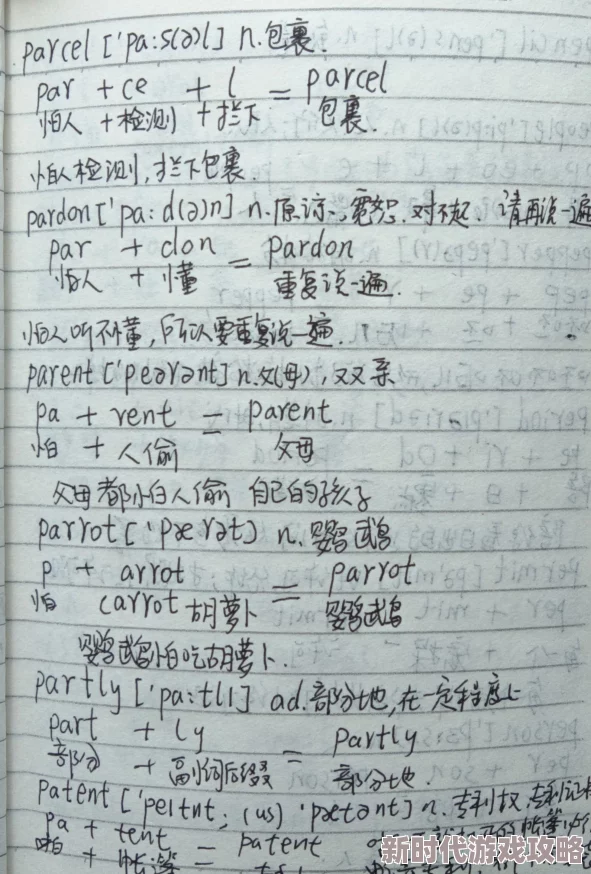 parcel ['pa:s(ə)l] n.包裹.
par + ce + l = parcel
怕人 + 检测 + 拦下 包裹.
怕人检测,拦下包裹
pardon ['pa:d(ə)n] n.原谅,宽恕.对不起.请再说一遍
par + don = pardon
怕人 + 懂 重复说一遍.
怕人听不懂,所以要重复说一遍.
parent ['peərənt] n.父(母),双亲
pa + rent = parent
怕 + 人偷 父母
父母都怕人偷 自己的孩子
parrot ['pærət] n.鹦鹉
p + arrot = parrot
怕 carrot 胡萝卜 鹦鹉
鹦鹉怕吃胡萝卜.
partly ['pa:tlI] ad.部分地,在一定程度上
part + ly = partly
部分 + 副词后缀 部分地.
patent ['peItnt; (us) 'pætənt] n.专利权,专利证
pa + tent = patent
怕 + 帐篷
新时代游戏攻略